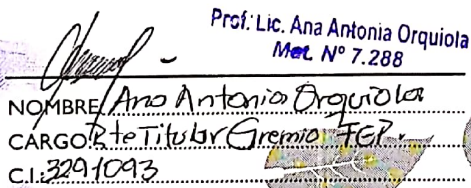 Prof. Lic. Ana Antonia Orquiola
Mat. Nº 7.288
NOMBRE Ana Antonia Orquiola
CARGO: Pte Titular Gremio FEP.
C.I.: 3291093